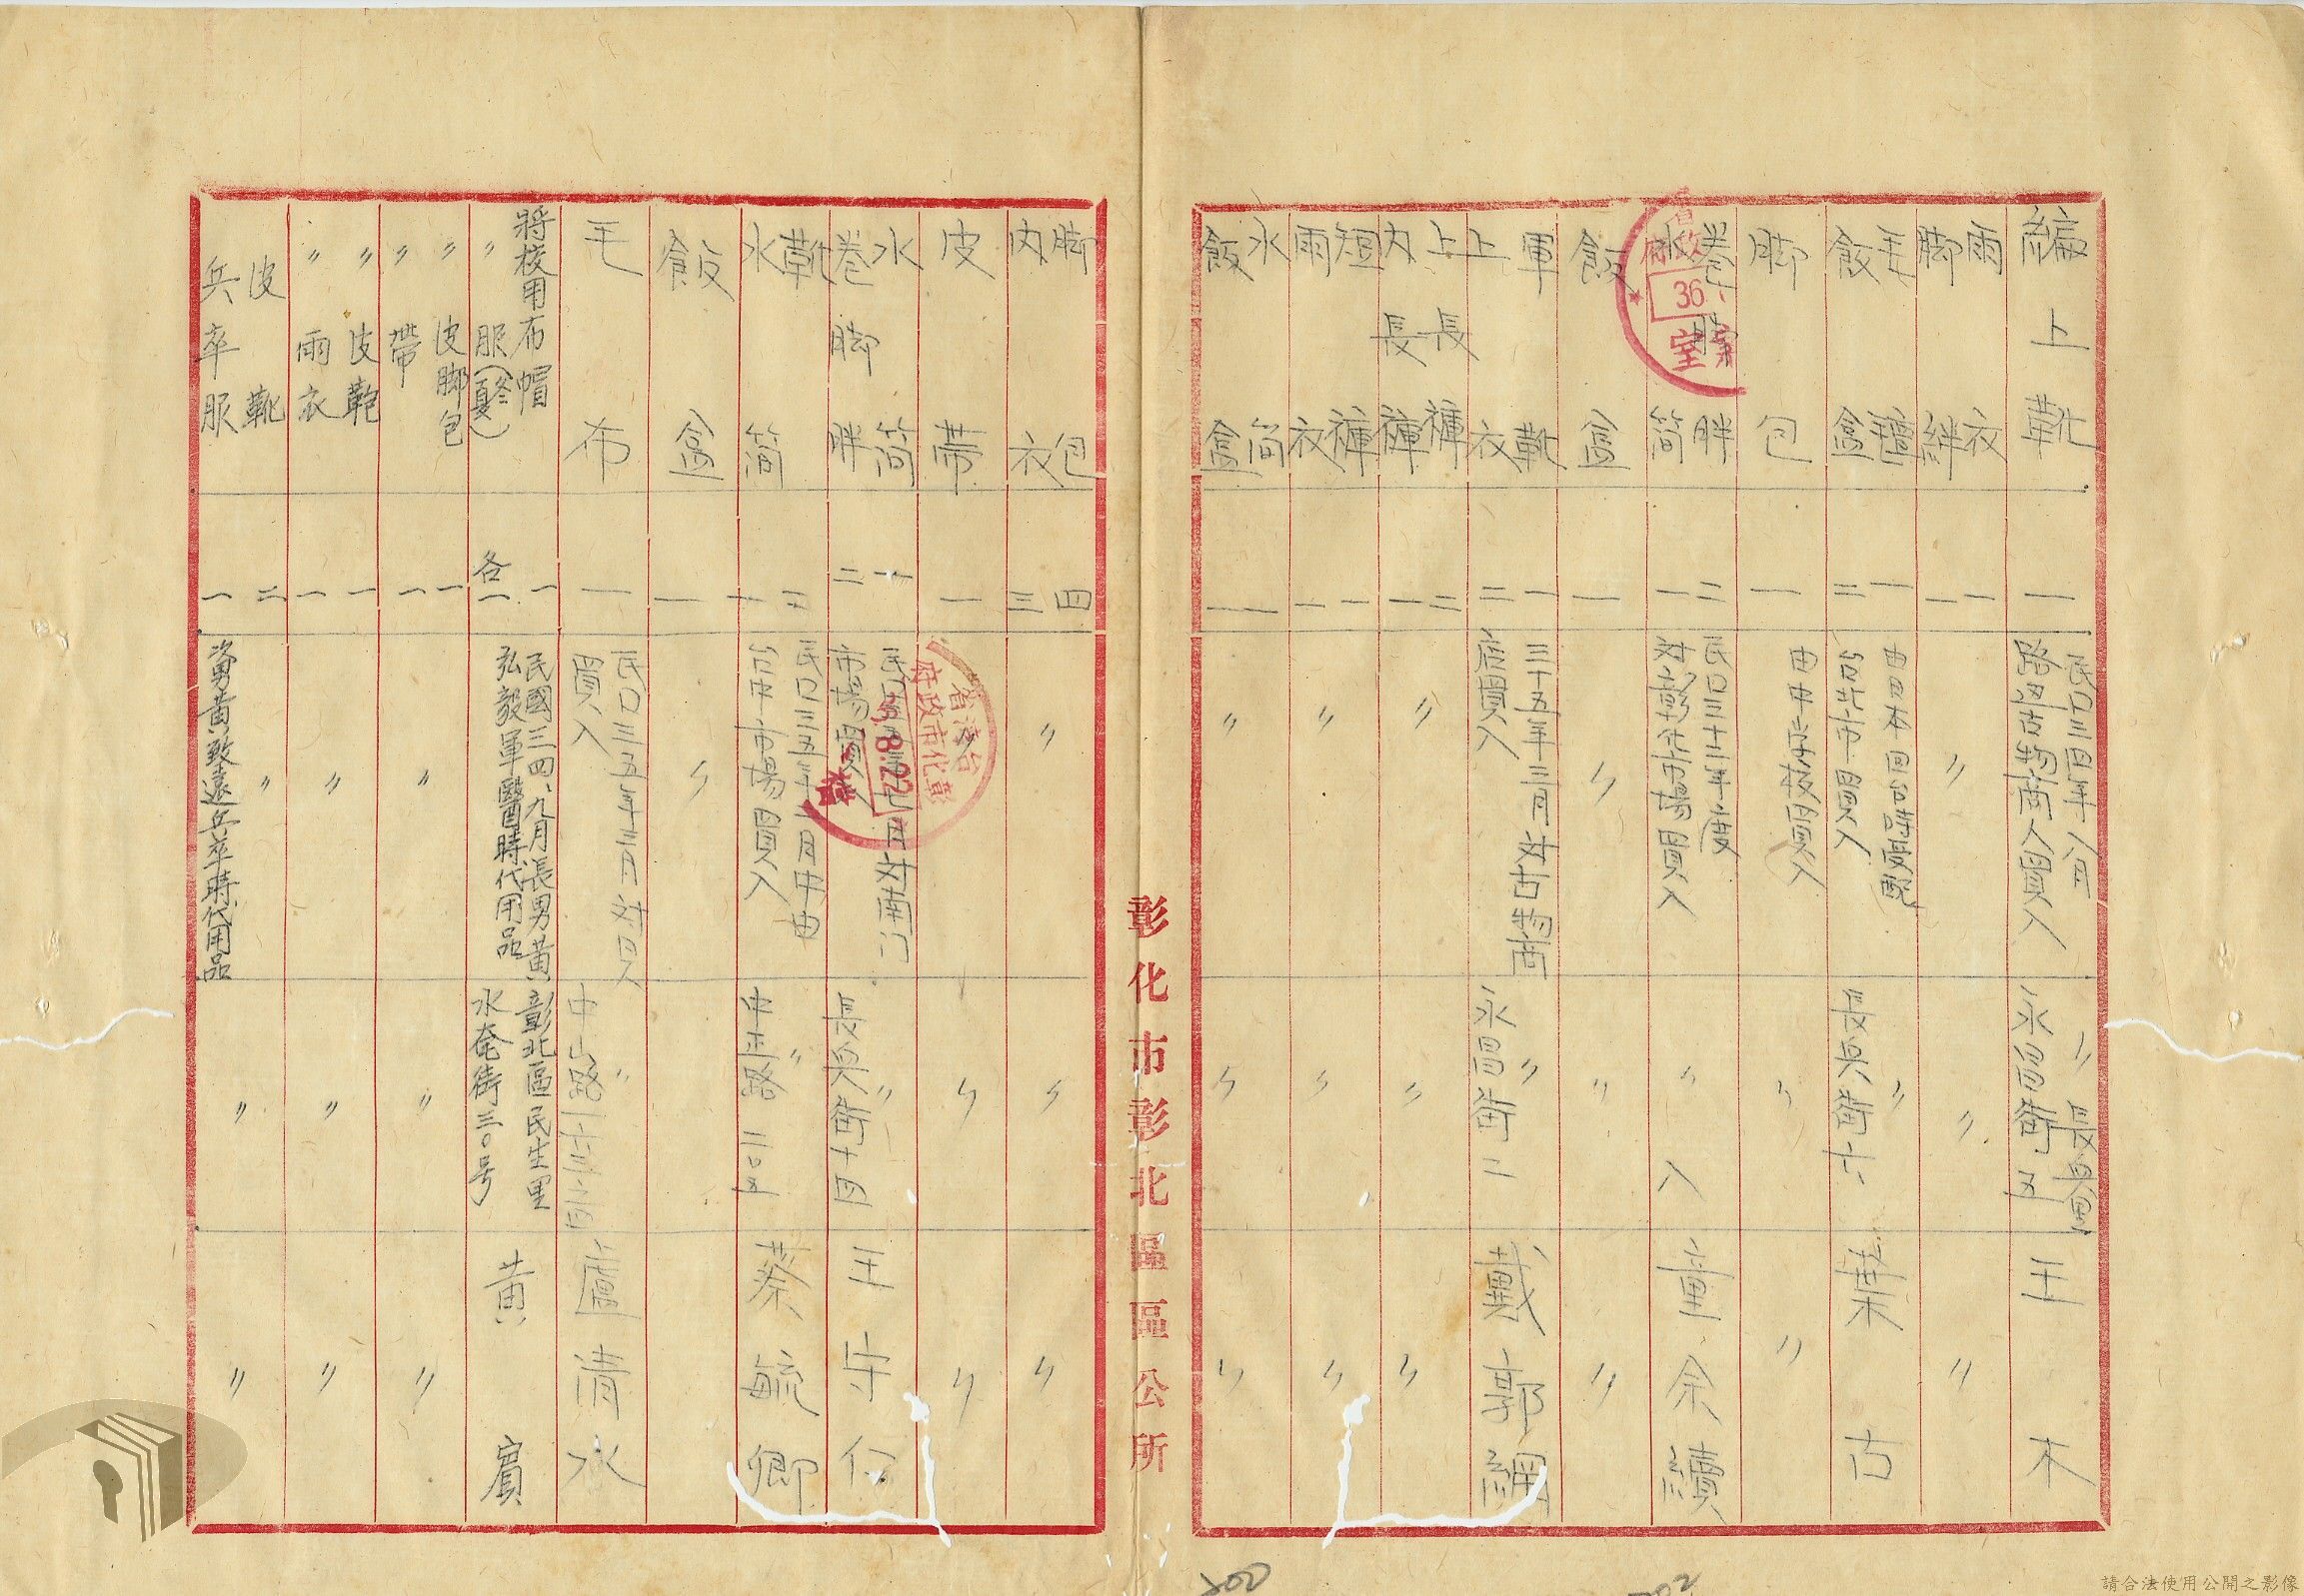 編上靴
一
民国三四年八月
路边古物商人買入
〃長興里
永昌街五
王木
雨衣
脚絆
一
一
〃
〃
〃
毛氈
飯盒
一
二
由日本回台時最配
台北市買入
〃
長興街六
葉古
脚包
一
由台中市場買入
〃
〃
卷脚胖
水筒
二
一
民国三十三年度
対彰化市場買入
〃
八
童余續
飯盒
一
〃
〃
〃
軍靴
上衣
一
二
三十五年三月対古物商
店買入
〃
永昌街二
戴郭綢
上長褲
內長褲
二
一
〃
〃
〃
短褲
雨衣
一
一
〃
〃
〃
水筒
飯盒
一
一
〃
〃
〃
彰化市彰北區區公所
脚包
內衣
四
三
〃
〃
〃
皮帶
一
〃
〃
水筒
卷脚胖
一
二
市場買入
〃
長興街十四
王守仁
靴
水筒
二
一
台中市場買入
〃
中正路二〇五
蔡毓卿
飯盒
一
〃
毛布
一
民国三五年三月対日人
買入
〃
中山路
盧清水
將校用布帽
〃服(冬夏)
一
各一
民國三四、九月長男黃
弘毅軍醫時代用品
彰北區民生里
水奄街三〇号
黃賓
〃皮脚包
〃帶
一
一
〃
〃
〃
〃皮鞄
〃雨衣
一
一
〃
〃
〃
皮靴
兵卒服
二
一
〃
次男黃致遠兵卒時代用品
〃
〃
36
室
台灣省
彰化市政府
8.22
200
202
請合法使用公開之影像